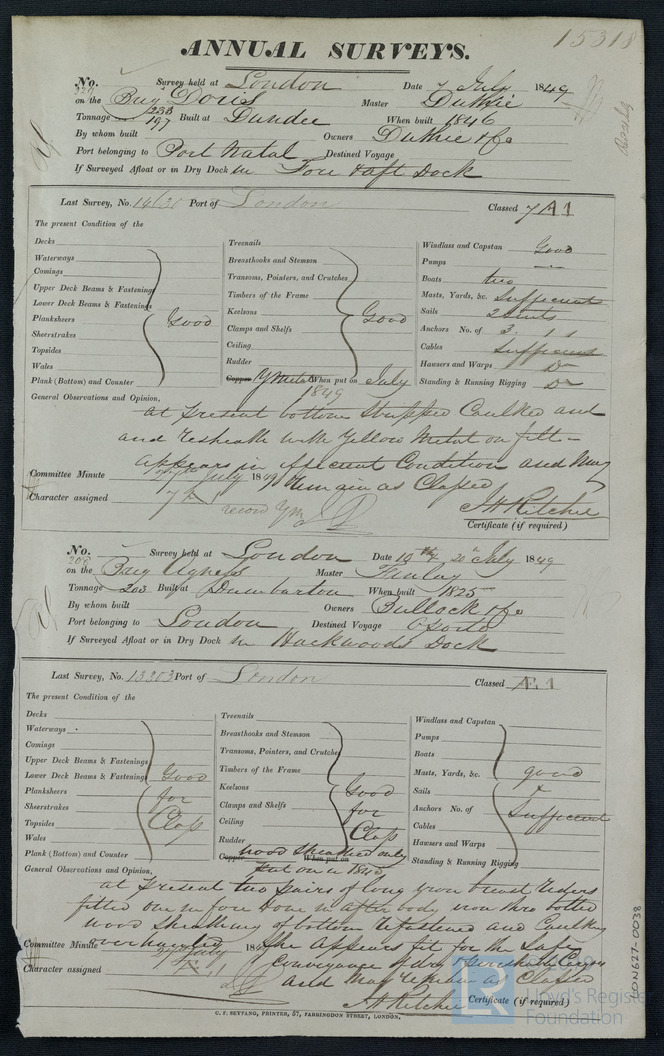 15318
ANNUAL SURVEYS.
No. Survey held at London Date 7 July 1849
on the Brig Doris Master Duthie
Tonnage 233 197 Built at Dundee When built 1846
By whom built Owners Duthie & Co
Port belonging to Port Natal Destined Voyage
If Surveyed Afloat or in Dry Dock in Fore & aft Dock
Last Survey, No. Port of London Classed 7 A1
The present Condition of the
Decks
Waterways
Comings
Upper Deck Beams & Fastenings
Lower Deck Beams & Fastenings
Planksheers Good
Sheerstrakes
Topsides
Wales
Plank (Bottom) and Counter
Treenails
Breasthooks and Stemson
Transoms, Pointers, and Crutches
Timbers of the Frame
Keelsons Good
Clamps and Shelfs
Ceiling
Rudder
Copper Y Metal When put on July 1849
Windlass and Capstan Good
Pumps
Boats two
Masts, Yards, &c. Sufficient
Sails 2 suits
Anchors No. of 3 1 1
Cables Sufficient
Hawsers and Warps Do
Standing & Running Rigging Do
General Observations and Opinion,
at present bottom stripped Caulked and
and resheath with Yellow Metal on felt -
appears in efficient Condition and may
Committee Minute July 1849 remain as Classed
Character assigned
record YM
J H Ritchie
Certificate (if required)
No. Survey held at London Date 10th & 20th July 1849
on the Brig Agness Master Finlay
Tonnage 203 Built at Dumbarton When built 1825
By whom built Owners Bullock & Co
Port belonging to London Destined Voyage Oporto
If Surveyed Afloat or in Dry Dock in Hackwoods Dock
Last Survey, No. 13303 Port of London Classed Æ 1
The present Condition of the
Decks
Waterways
Comings
Upper Deck Beams & Fastenings
Lower Deck Beams & Fastenings Good
Planksheers for
Sheerstrakes
Topsides Class
Wales
Plank (Bottom) and Counter
Treenails
Breasthooks and Stemson
Transoms, Pointers, and Crutches
Timbers of the Frame
Keelsons Good
Clamps and Shelfs for
Ceiling Class
Rudder
Copper When put on wood sheathed only
put on in
Windlass and Capstan
Pumps
Boats
Masts, Yards, &c. good
Sails &
Anchors No. of Sufficient
Cables
Hawsers and Warps
Standing & Running Rigging
General Observations and Opinion,
at present two pairs of long Iron breast riders
fitted one in fore & one in after body, iron thro bolted
wood sheathing of bottom refastened and Caulking
Committee Minute overhauled July 1849 She appears fit for the Safe
Conveyance of dry & Perishable Cargoes
Character assigned and may remain as Classed
J H Ritchie Certificate (if required)
C. F. SEYFANG, PRINTER, 57, FARRINGDON STREET, LONDON.
LON627-0038
LR
Lloyd's Register
Foundation